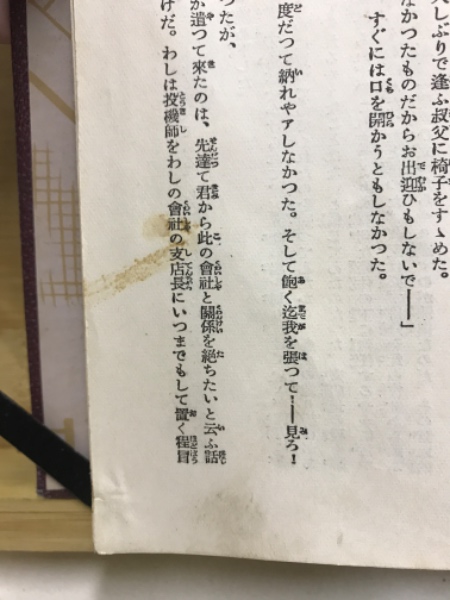 久しぶりで逢ふ叔父に椅子をすゝめた。
なかつたものだからお出迎ひもしないで――」
すぐには口を開かうともしなかつた。
度だつて納れやアしなかつた。そして飽く迄我を張つて！――見ろ！
つたが、
か遺つて來たのは、先達て君から此の會社と關係を絶ちたいと云ふ話
けだ。わしは投機師をわしの會社の支店長にいつまでもして置く程盲目